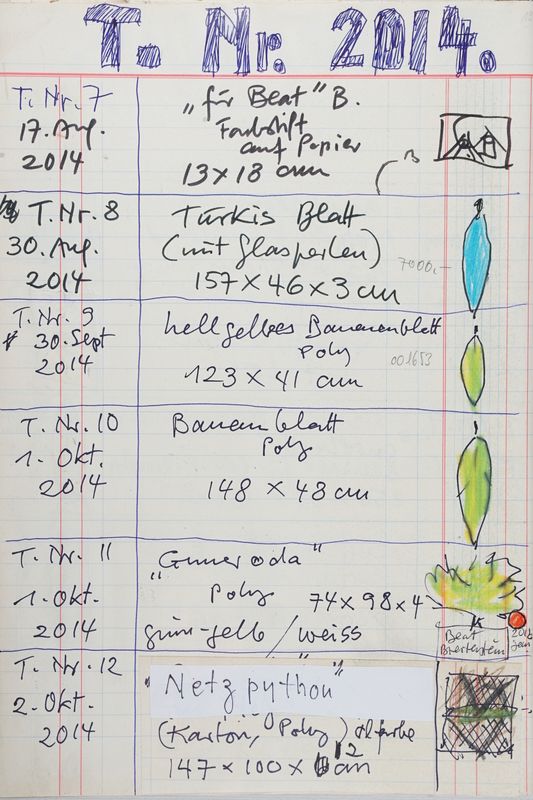 T. Nr. 2014.
T. Nr. 7
17. Aug.
2014
„für Beat" B.
Farbstift
auf Papier
13 x 18 cm
T. Nr. 8
30. Aug.
2014
Türkis Blatt
(mit Glasperlen)
157 x 46 x 3 cm
7000.-
T. Nr. 9
30. Sept
2014
hellgelbes Bananenblatt
Poly
123 x 41 cm
001653
T. Nr. 10
1. Okt.
2014
Bananenblatt
Poly
148 x 48 cm
T. Nr. 11
1. Okt.
2014
„Guneroda"
Poly 74 x 98 x 4
grün-gelb / weiss
Beat
Breitenstein
T. Nr. 12
2. Okt.
2014
„Netzpython"
(Karton, Poly) Ölfarbe
147 x 100 x 12 cm